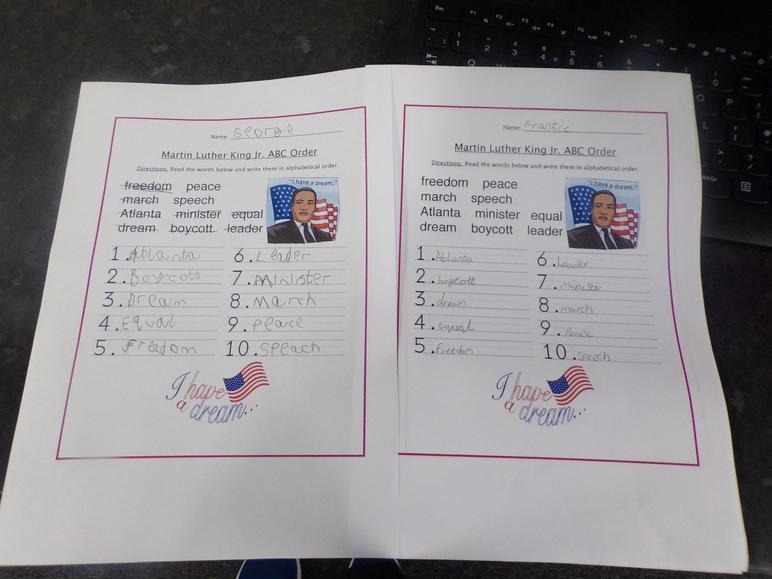 Name: George
Martin Luther King Jr. ABC Order
Directions: Read the words below and write them in alphabetical order.
freedom peace
march speech
Atlanta minister equal
dream boycott leader
"I have a dream."
1. Atlanta
2. Boycott
3. Dream
4. Equal
5. Freedom
6. Leader
7. Minister
8. March
9. Peace
10. Speach
I have
a dream...
Name: Frankie
Martin Luther King Jr. ABC Order
Directions: Read the words below and write them in alphabetical order.
freedom peace
march speech
Atlanta minister equal
dream boycott leader
"I have a dream."
1. Atlanta
2. boycott
3. dream
4. equal
5. Freedom
6. Leader
7. minister
8. march
9. Peace
10. speech
I have
a dream...